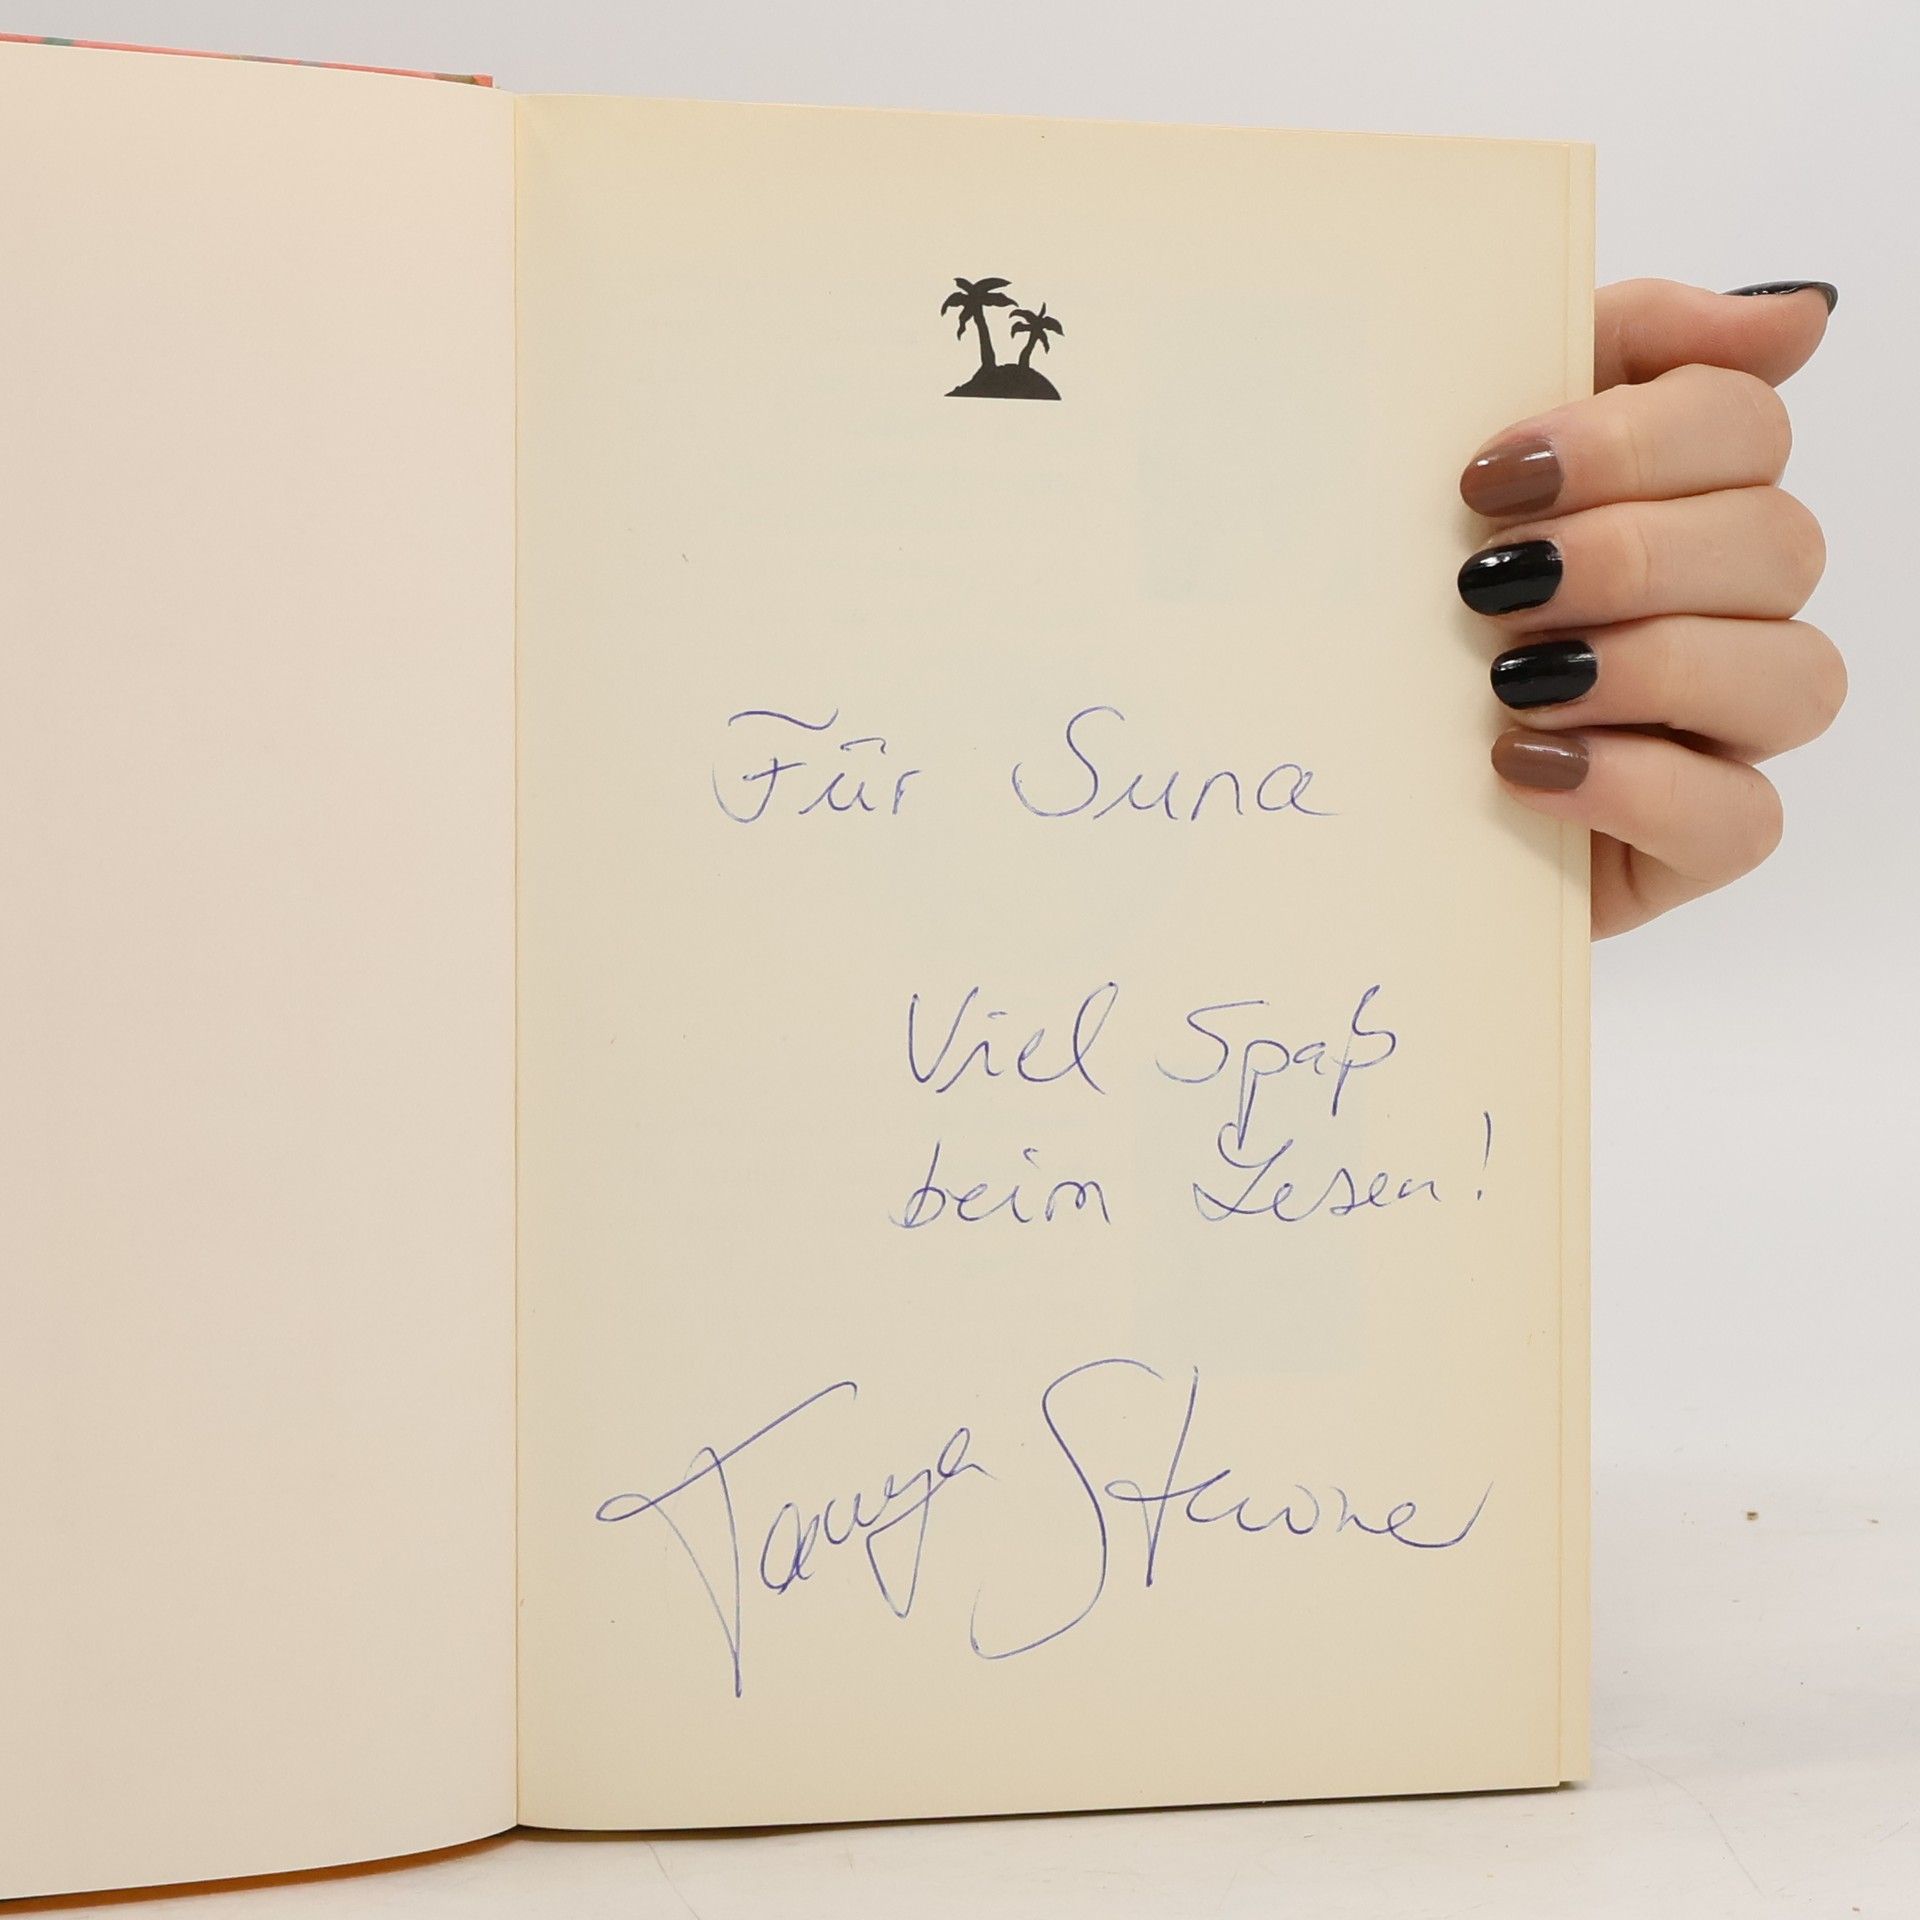 Für Suna
Viel Spaß
beim Lesen!
Tanya Stewner